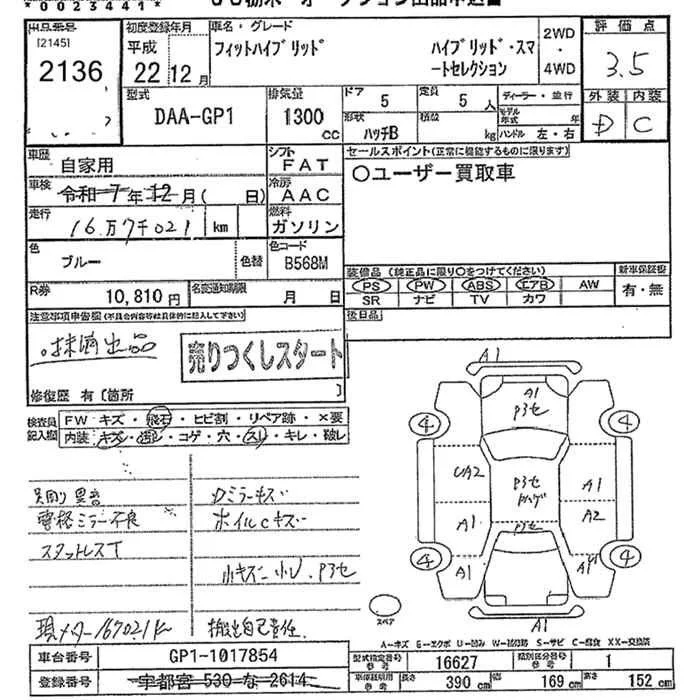 *0023441*
JU栃木 オークション出品申込書
出品番号
[2145]
2136
初度登録年月
平成
22年12月
車名・グレード
フィットハイブリッド ハイブリッド・スマートセレクション
2WD
・
4WD
評価点
3.5
外装 内装
D C
型式
DAA-GP1
排気量
1300
CC
ドア 5
定員 5人
ディーラー・並行
モデル年式 年
形状 ハッチB
積載 kg
ハンドル 左・右
車歴 自家用
シフト
FAT
セールスポイント(正常に機能するものに限ります)
〇ユーザー買取車
車検 令和 7年12月( 日)
冷房
AAC
走行 16万7千021 km
燃料
ガソリン
色 ブルー 色替
色コード
B568M
装備品(純正品に限り〇をつけてください)
PS PW ABS エアB AW
SR ナビ TV カワ
新車保証書
有・無
R券 10,810円
名変通知期限 月 日
後日品
注意事項申告欄(不具合内容等は具体的に記入して下さい)
抹消出品
売りつくしスタート
修復歴 有〔箇所 〕
検査員記入欄
FW キズ・飛石・ヒビ割・リペア跡・×要
内装・キズ・汚レ・コゲ・穴・スレ・キレ・破レ
足周り異音
電格ミラー不良
スタットレスT
現メーター167021K
Dミラーキズ
ホイルCキズ
小キズ 小U. P3セ
搬出自己責任.
A1
A1
P3セ
4
4
UA2
P3セ
A1
A1
A2
P3セ
4
4
A1
A1
A1
スペア
A-キズ E-エクボ U-凹み W-補修跡 S-サビ C-腐食 XX-交換済
車台番号 GP1-1017854
型式指定番号 16627
類別区分番号 1
登録番号 宇都宮 530 な 2614
車体証明用 長さ 390cm 幅 169cm 高さ 152cm